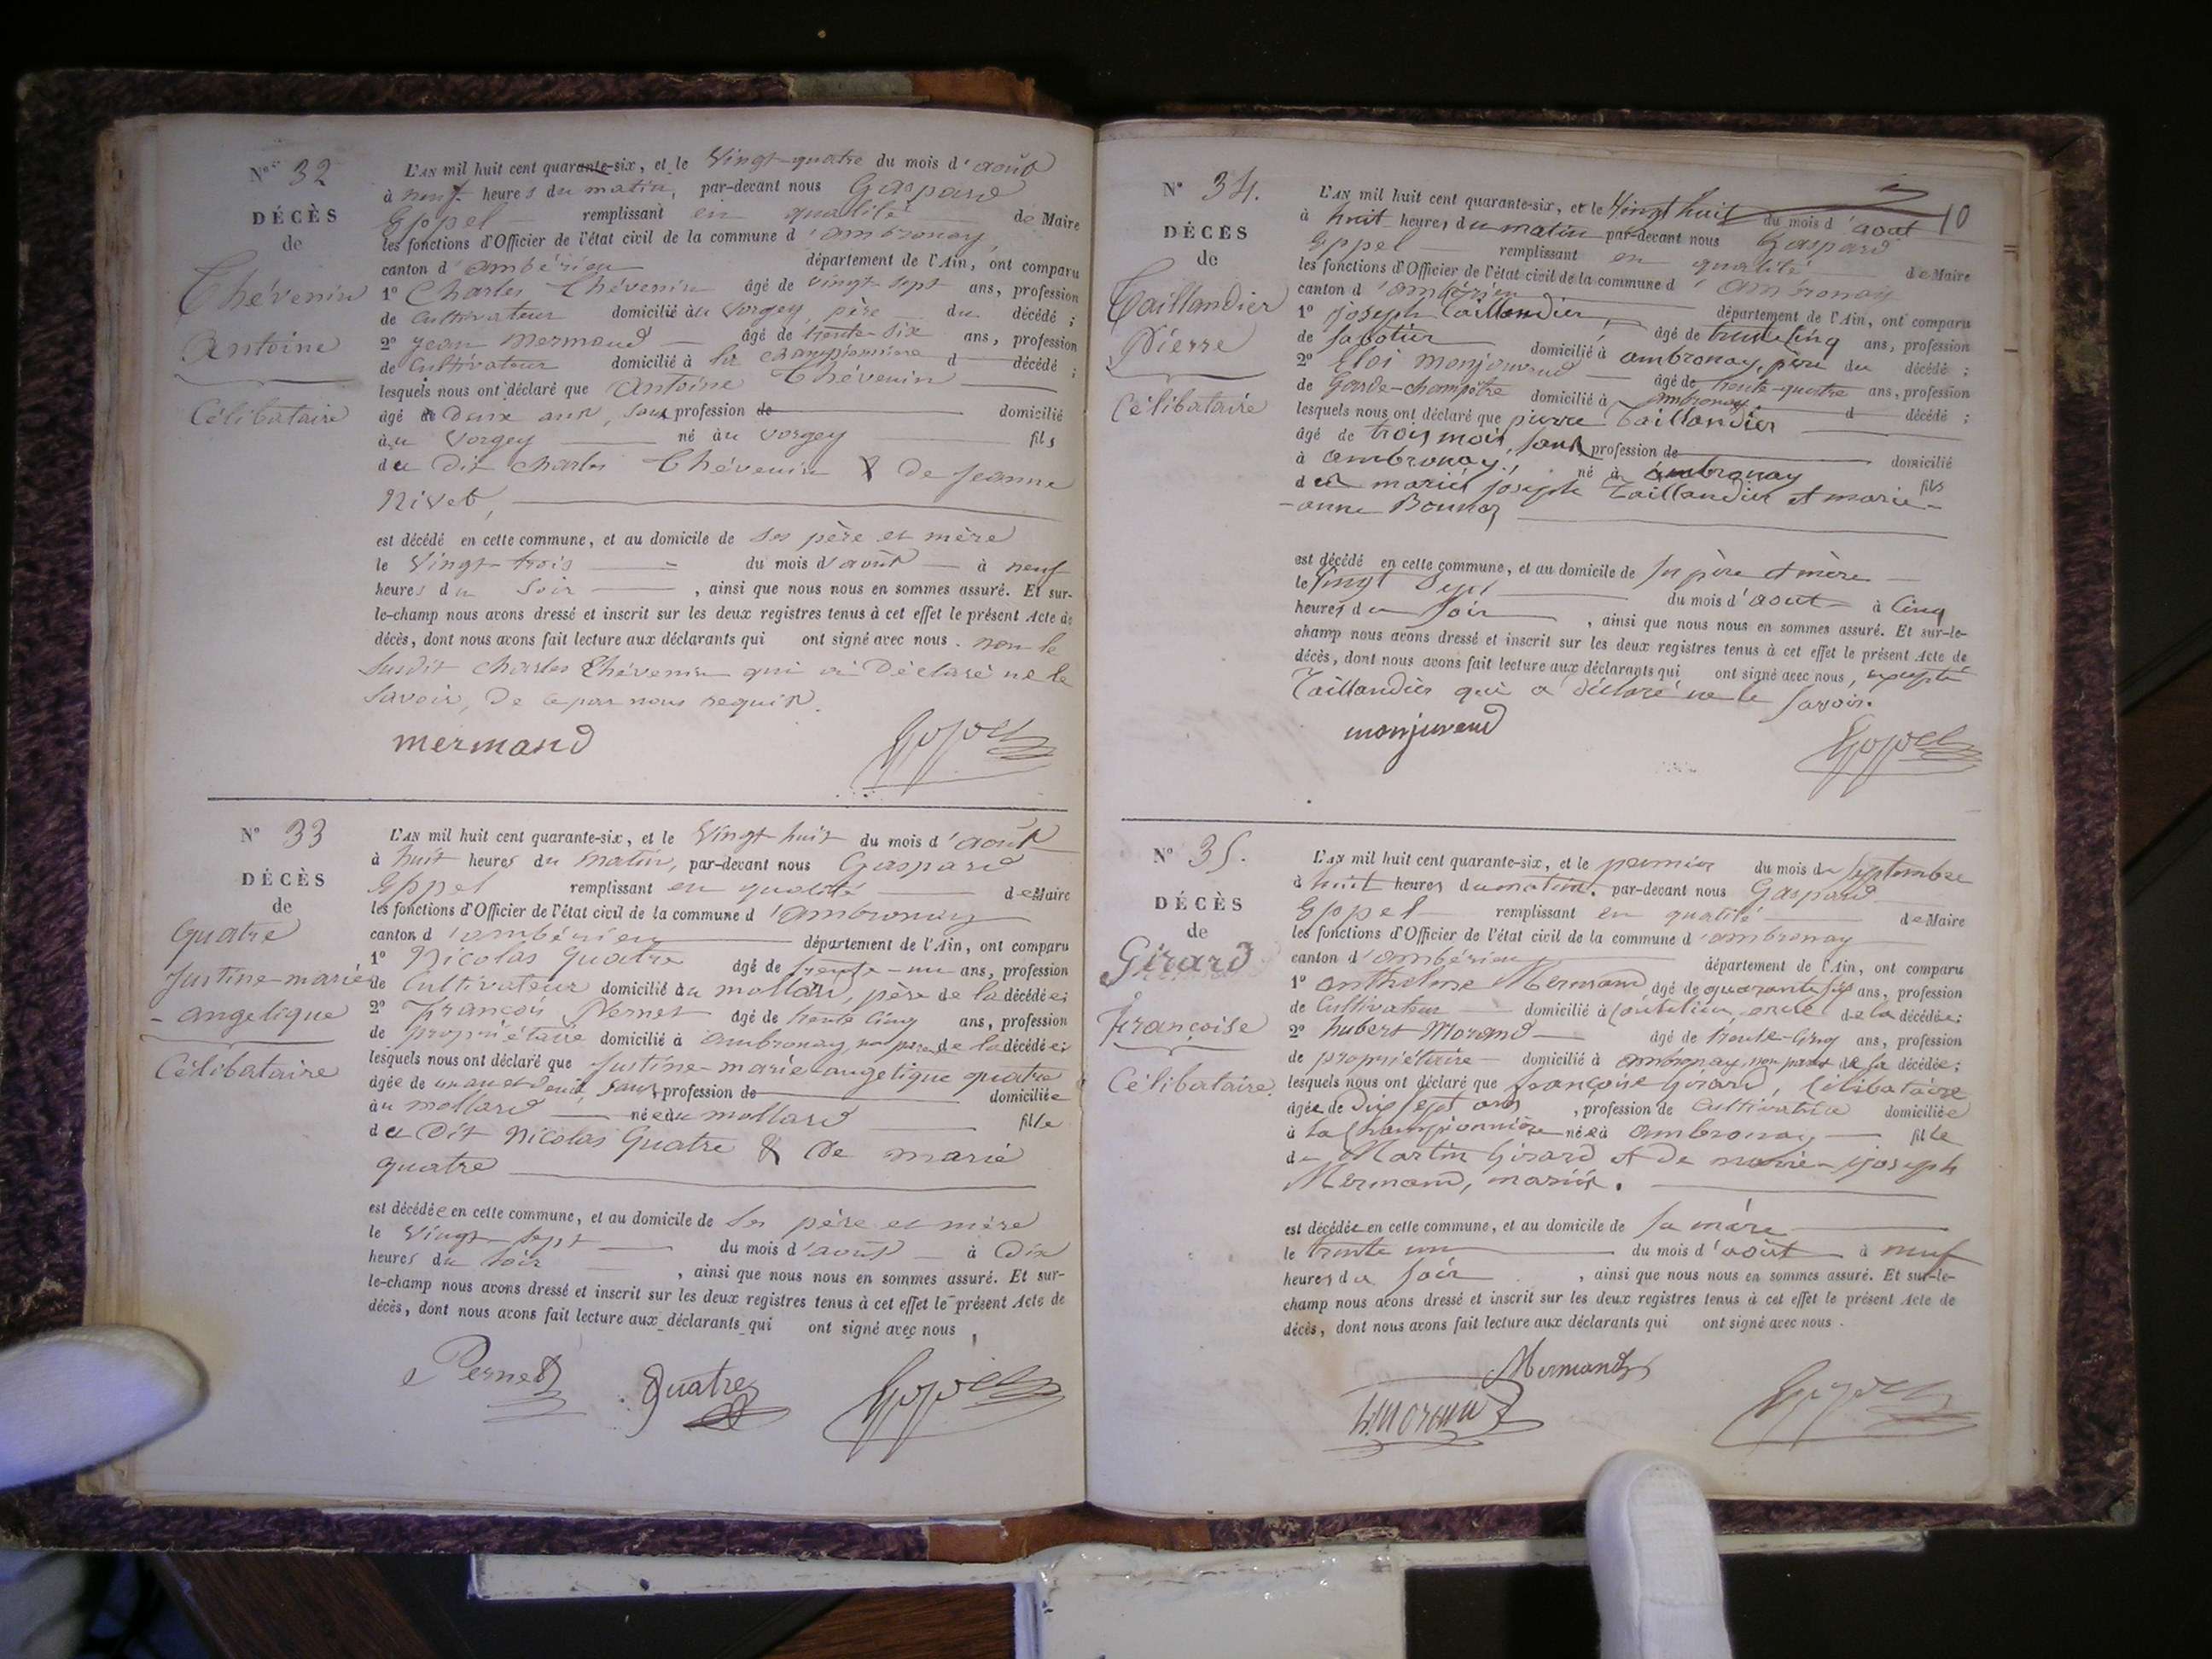 N° 32
DÉCÈS
de
Thévenin
Antoine
Célibataire
L'AN mil huit cent quarante-six, et le Vingt-quatre du mois d'août
à neuf heures du matin, par-devant nous Gaspard
Eppel remplissant en qualité de Maire
les fonctions d'Officier de l'état civil de la commune d'ambronay,
canton d'ambérieu département de l'Ain, ont comparu
1° Charles Thévenin âgé de vingt-sept ans, profession
de Cultivateur domicilié au Vorgey, père du décédé ;
2° Jean Mermand âgé de trente-six ans, profession
de Cultivateur domicilié à la Championnière d décédé ;
lesquels nous ont déclaré que Antoine Thévenin
âgé de Deux ans, sans profession de domicilié
au Vorgey né au vorgey fils
du Dit Charles Thévenin & de Jeanne
Nivet,
est décédé en cette commune, et au domicile de ses père et mère
le Vingt-trois du mois d'août à neuf
heures du Soir , ainsi que nous nous en sommes assuré. Et sur-
le-champ nous avons dressé et inscrit sur les deux registres tenus à cet effet le présent Acte de
décès, dont nous avons fait lecture aux déclarants qui ont signé avec nous. non le
susdit Charles Thévenin qui a Déclaré ne le
savoir, De ce par nous requis.
mermand
Eppel
N° 33
DÉCÈS
de
Quatre
Justine-marie
-angelique
Célibataire
L'AN mil huit cent quarante-six, et le Vingt-huit du mois d'août
à huit heures du matin, par-devant nous Gaspard
Eppel remplissant en qualité de Maire
les fonctions d'Officier de l'état civil de la commune d'ambronay
canton d'ambérieu département de l'Ain, ont comparu
1° Nicolas Quatre âgé de trente-un ans, profession
de Cultivateur domicilié au mollard, père de la décédée ;
2° François Pernet âgé de trente cinq ans, profession
de propriétaire domicilié à ambronay, non parent de la décédée ;
lesquels nous ont déclaré que Justine-marie-angelique quatre
âgée de un an et demi, sans profession de domiciliée
au mollard née au mollard fille
du Dit Nicolas Quatre & de marie
quatre
est décédée en cette commune, et au domicile de ses père et mère
le Vingt-sept du mois d'août à Dix
heures du soir , ainsi que nous nous en sommes assuré. Et sur-
le-champ nous avons dressé et inscrit sur les deux registres tenus à cet effet le présent Acte de
décès, dont nous avons fait lecture aux déclarants qui ont signé avec nous,
Pernet Quatre Eppel
10
N° 34.
DÉCÈS
de
Taillandier
Pierre
Célibataire
L'AN mil huit cent quarante-six, et le Vingt huit du mois d'août
à huit heures du matin par-devant nous Gaspard
Eppel remplissant en qualité de Maire
les fonctions d'Officier de l'état civil de la commune d'ambronay
canton d'ambérieu département de l'Ain, ont comparu
1° joseph Taillandier, âgé de trente cinq ans, profession
de sabotier domicilié à ambronay, père du décédé ;
2° Eloi Monjouvend âgé de trente-quatre ans, profession
de Garde-champêtre domicilié à ambronay d décédé ;
lesquels nous ont déclaré que pierre Taillandier
âgé de trois mois, sans profession de domicilié
à ambronay, né à ambronay fils
des mariés joseph Taillandier et marie-
-anne
est décédé en cette commune, et au domicile de ses père et mère
le Vingt Sept du mois d'août à cinq
heures du soir , ainsi que nous nous en sommes assuré. Et sur-le-
champ nous avons dressé et inscrit sur les deux registres tenus à cet effet le présent Acte de
décès, dont nous avons fait lecture aux déclarants qui ont signé avec nous, excepté
Taillandier qui a déclaré ne le savoir.
monjuvend
Eppel
N° 35.
DÉCÈS
de
Girard
Françoise
Célibataire.
L'AN mil huit cent quarante-six, et le premier du mois de Septembre
à huit heures du matin, par-devant nous Gaspard
Eppel remplissant en qualité de Maire
les fonctions d'Officier de l'état civil de la commune d'ambronay
canton d'ambérieu département de l'Ain, ont comparu
1° anthelme Mermand âgé de quarante six ans, profession
de Cultivateur domicilié à Coutelieu, oncle de la décédée ;
2° hubert Morand âgé de trente-cinq ans, profession
de propriétaire domicilié à ambronay, non parent de la décédée ;
lesquels nous ont déclaré que françoise Girard, Célibataire
âgée de Dix sept ans , profession de Cultivatrice domiciliée
à la Championnière née à ambronay fille
de Martin Girard et de marie-joseph
Mermand, mariés.
est décédée en cette commune, et au domicile de sa mère
le trente un du mois d'août à neuf
heures du soir , ainsi que nous nous en sommes assuré. Et sur-le-
champ nous avons dressé et inscrit sur les deux registres tenus à cet effet le présent Acte de
décès, dont nous avons fait lecture aux déclarants qui ont signé avec nous.
Mermand
h. morand Eppel